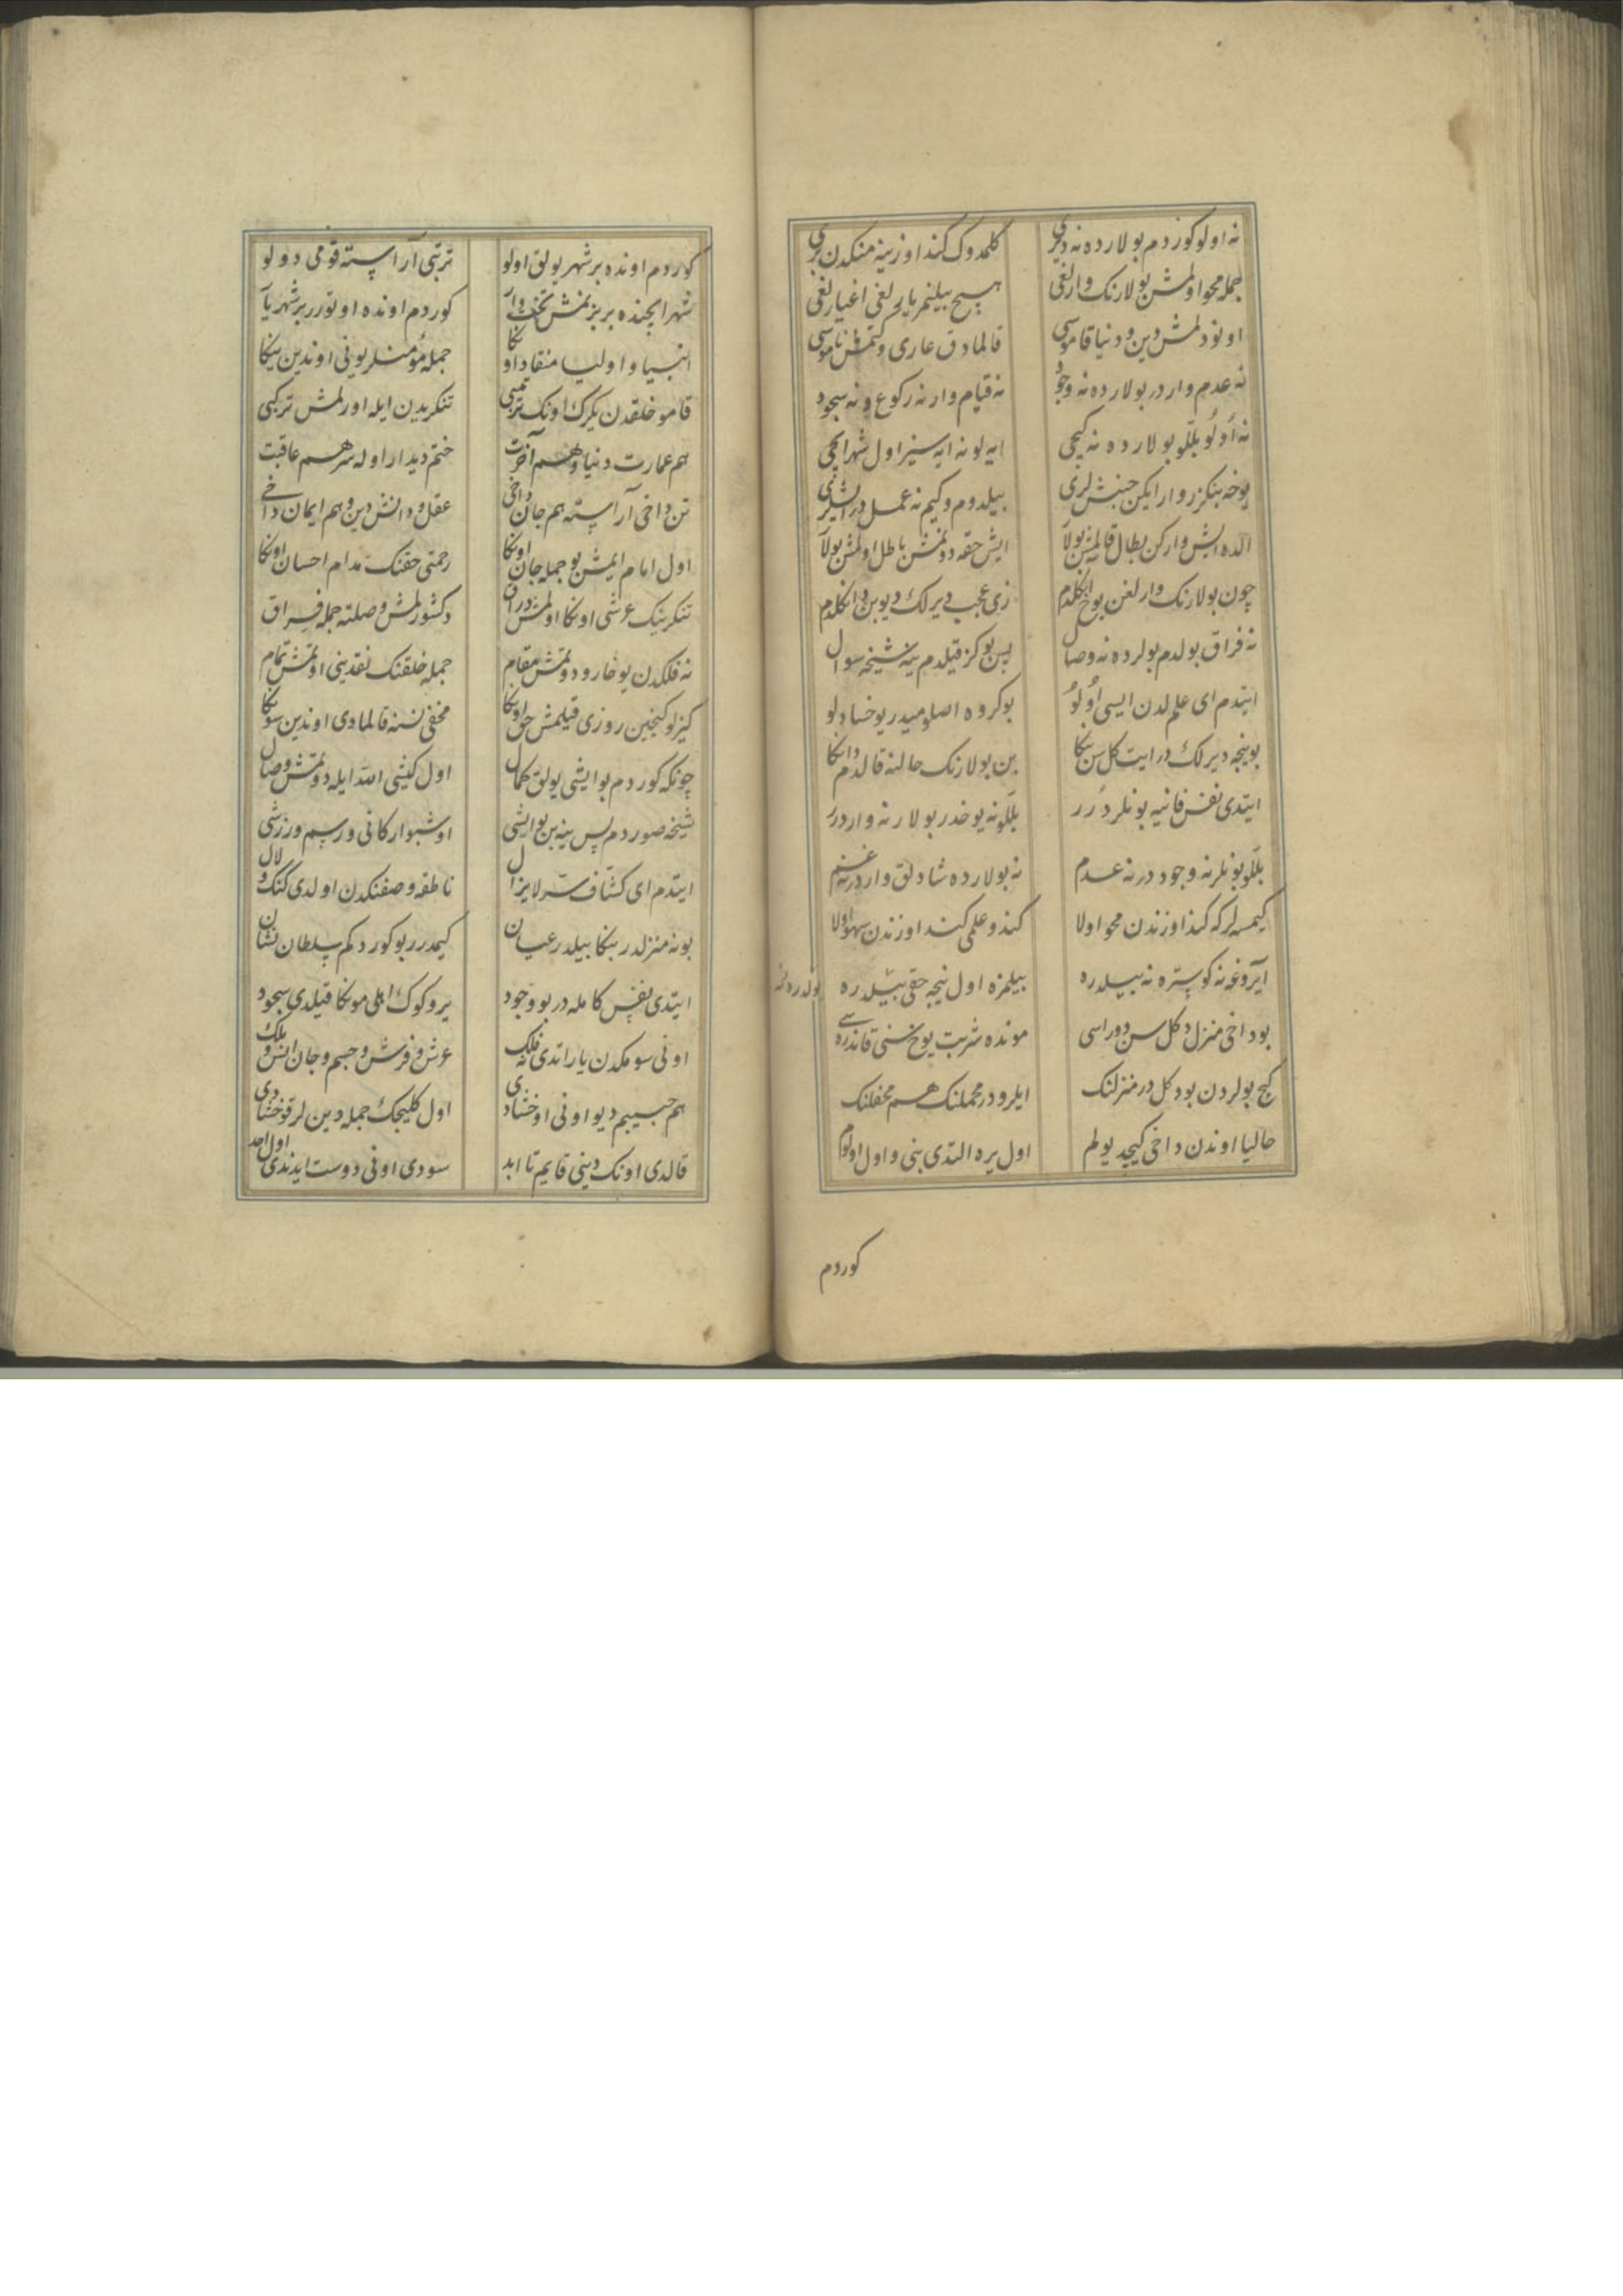 نه اولو كوردم بولارده نه دیری كلمدوك كند اوزینه منكدن بری
جمله محو اولمش بولارنك وارلغی هیچ بیلنمز یارلغی اغیارلغی
اونودلمش دین و دنیا قاموسی قالمادق عاری و كتمش ناموسی
نه عدم واردر بولارده نه وجود نه قیام وار نه ركوع و نه سجود
نه اُولُو بللو بولارده نه كیچی ایه لو نه ایه سیز اول شهر ایچی
یوخه بنكزر وار ایكن جنبش لری بیلدوم وكیم نه عمل در ایشلری
الده ایش واركن بطال قالمش بولا ایش حقه دونمش باطل اولمش بولا
چون بولارنك وارلغن یوخ اكلدم زی عجب دیرلك دیوبن داكلدم
نه فراق بولدم بولرده نه وصال پس بو كز قیلدم ینه شیخه سوال
ایتدم ای علم لدن ایسی اُولُو بو كروه اصلومیدر یوخسا دلو
بو نیجه دیرلك در ایت كل سن بكا بن بولارنك حالنه قالدم داكا
ایتدی نفس فانیه بونلر دُرر بللو نه یوخدر بولار نه واردرر
بللو بونلر نه وجوددر نه عدم نه بولارده شادلق واردر نه غم
كیمسه لر كه كند اوزندن محو اولا كند و علمی كند اوزندن سهو اولا
آیروغه نه كوستره نه بیلدره بیلمزه اول نیجه حقی بیلدره
بو داخی منزل دكل سن دوراسی مونده شربت یوخ سنی قاندراسی
كج بولردن بو دكل در منزلنك ایلرودر محملنك هم محفلنك
حالیا اوندن داخی كیچدی یولم اول یره التدی بنی و اول اولوم
كوردم
كوردم اونده بر شهر یولق اولو تربتی آراسته قومی دولو
شهر ایچنده بر بزنمش تخت وار كوردم اونده اوتورر بر شهریار
انبیا و اولیا منقاد اوكا جمله مؤمنلر یونی اوندین یكا
قامو خلقدن یكرك اونك ترتیبی تنكریدن ایله اورلمش تركیبی
هم عمارت دنیا و هم آخرت ختم دیدار اوله سر هم عاقبت
تن داخی آراسته هم جان داخی عقل و دانش دین و هم ایمان داخی
اول امام ایمش بو جمله جان اوكا رحمتی حقنك مدام احسان اوكا
تنكرینك عرشی اونكا اولمش دراق دكشورلمش وصلته جمله فراق
نه فلكدن یوخارو دوتمش مقام جمله خلقنك نقدینی اوتمش تمام
كیزلو كنجین روزی قیلمش حق اونكا مخفی نسنه قالمادی اوندین سونكا
چونكه كوردم بو ایشی یولق كمال اول كیشی الله ایله دوتمش وصال
شیخه صوردم پس ینه بن بو ایشی اوشبو اركانی و رسم ورزشی
ایتدم ای كشاف سر لایزال ناطقه وصفنكدن اولدی كنك و لال
بو نه منزلدر بنكا بیلدر عیان كیمدرر بو كوردكم سلطان نشان
ایتدی نفس كامله در بو وجود یر و كوك اهلی مونكا قیلدی سجود
اونی سومكدن یاراتدی نه فلك عرش و فرش و جسم و جان انس و ملك
هم حبیبم دیو اونی اوخشادی اول كلیجك جمله دین لر قوخشادی
قالدی اونك دینی قایم تا ابد سودی اونی دوست ایدندی اول احد